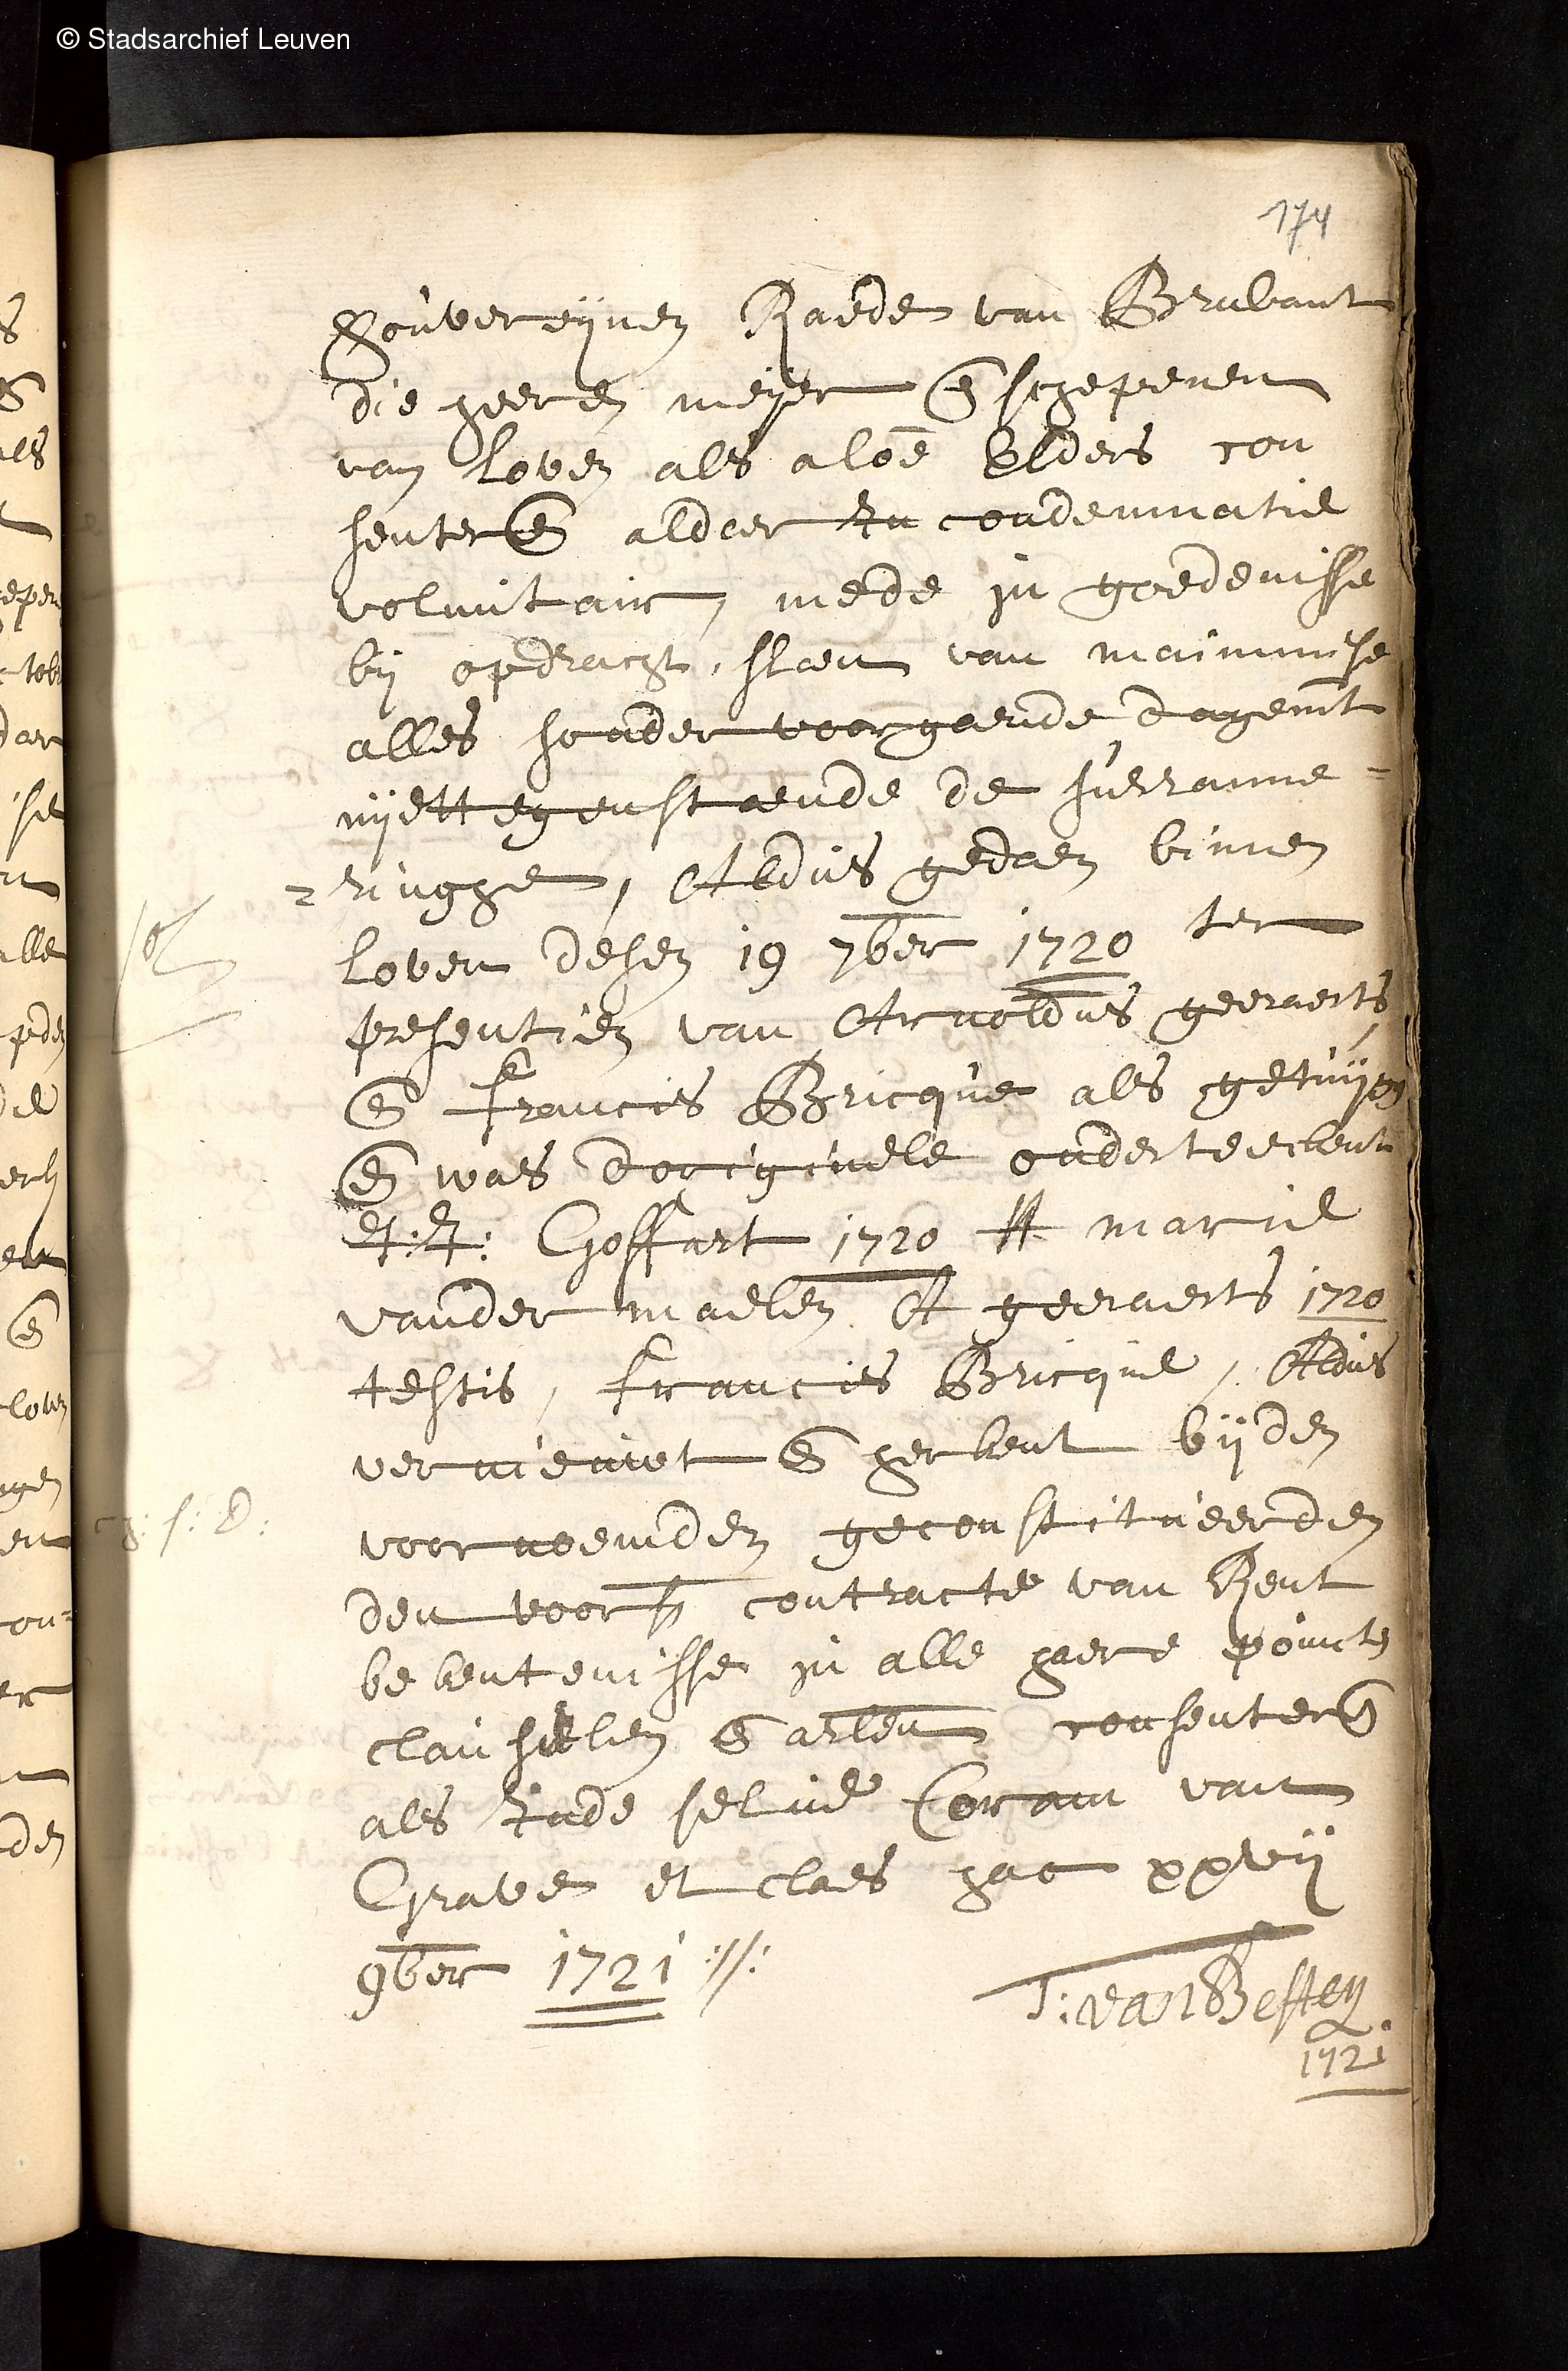 © Stadsarchief Leuven
174
Souvereijnen Raede van Brabant
die heeren meijer en schepenen
van Loven als aloē Elders con
senteren aldaer In condemnatie
volontair, mede in goedenisse
bij opdracht, slaen van mainmise
alles sonder voorgaende dagemt
nijettegenstaende de surranne-
ringhe, Aldus gedaen binnen
Loven desen 19 7ber 1720 ter
presentien van Arnoldus geeraerts
en Francis Bricque als getuijgen
en was d'origineele onderteeckent
Goffart 1720 marie
vander maelen A geeraerts 1720
testis, francis Bricque, Aldus
vernieuwt en herkent bij den
voornoemden geconstitueerden
den voors contracte van Rent
bekentenisse in alle haere poincten
clausulen en arlen consenteren
als Inde selve Coram van
Grave et claes hac xxvij
9ber 1721 ://:
J: van Besten
1721